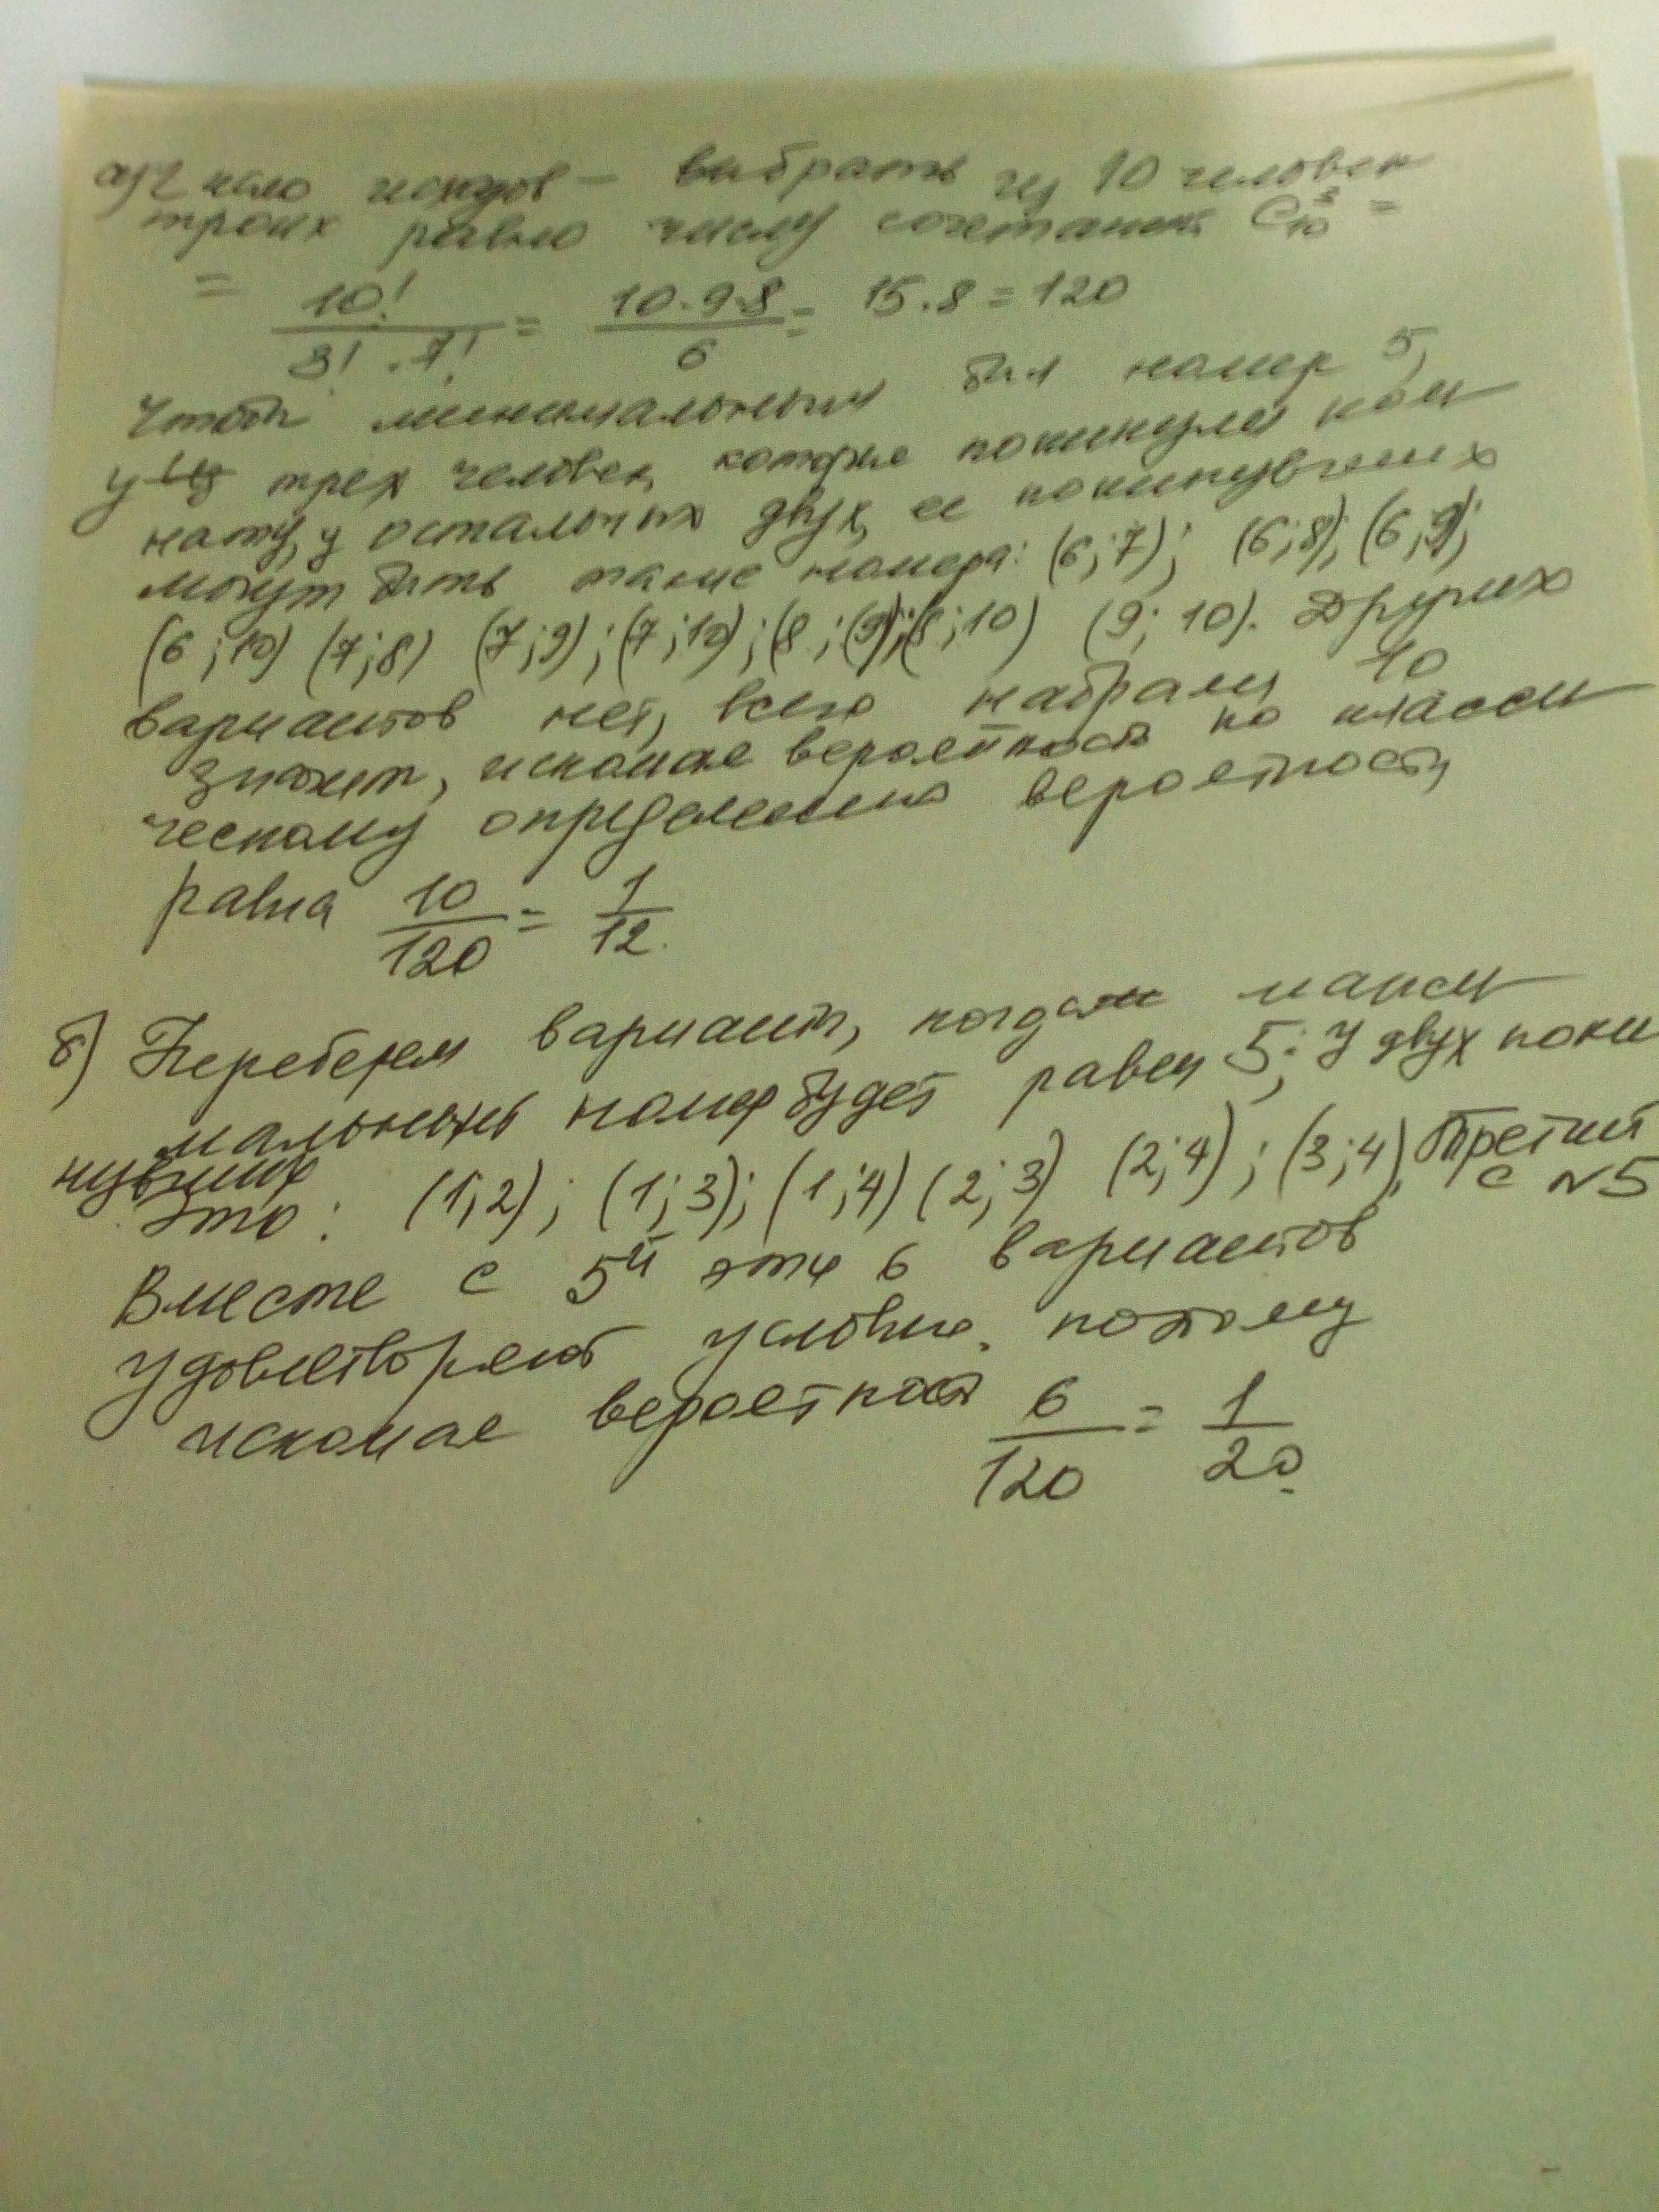 а) Число исходов – выбрать из 10 человек
троих равно числу сочетаний C₁₀³ =
= 10!/(3! · 7!) = (10·9·8)/6 = 15·8 = 120
Чтобы минимальным был номер 5,
у трех человек, которые покинули ком
нату, у остальных двух, ее покинувших
могут быть такие номера: (6;7); (6;8); (6;9);
(6;10) (7;8) (7;9); (7;10); (8;(9); (8;10) (9;10). Других
вариантов нет, всего набрали 10
значит, искомая вероятность по класси
ческому определению вероятности
равна 10/120 = 1/12.
б) Переберем варианты, когда макси
мальный номер будет равен 5; У двух поки
нувших
это: (1;2); (1;3); (1;4) (2;3) (2;4); (3;4), третий
с №5
Вместе с 5й эти 6 вариантов
удовлетворяют условию, поэтому
искомая вероятность 6/120 = 1/20